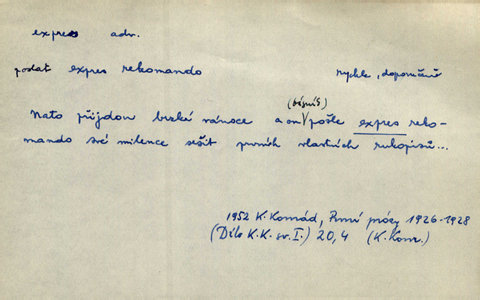 expres adv.
podat expres rekomando rychle, doporučeně
(básník)
Nato přijdou brzké vánoce a on pošle expres reko-
mando své milence sešit prvních vlastních rukopisů...
1952 K. Konrád, První prózy 1926-1928
(Dílo K.K. sv. I.) 20,4 (K. Konr.)